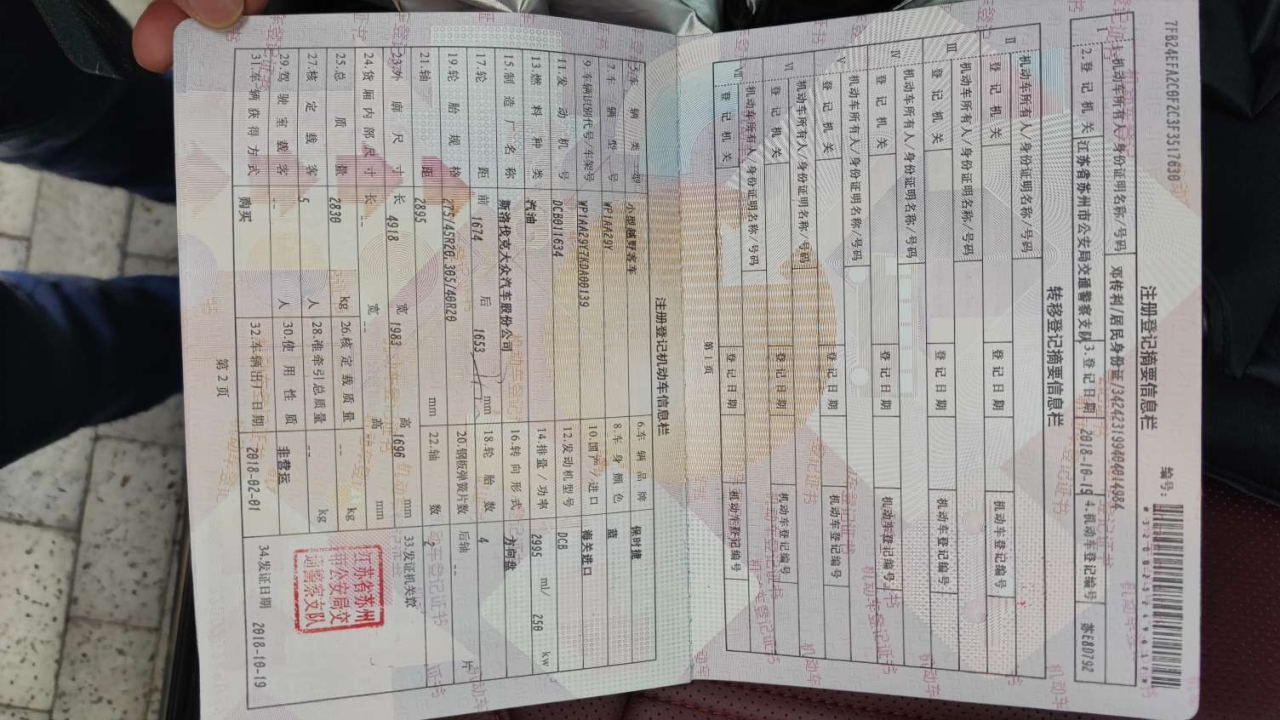 7FB24EFA2C0F2C3F3517830
注册登记摘要信息栏
编号:
I 1.机动车所有人/身份证明名称/号码 邓传利/居民身份证/342423199404016984
2.登记机关 江苏省苏州市公安局交通警察支队 3.登记日期 2018-10-19 4.机动车登记编号 苏E80792
转移登记摘要信息栏
II 机动车所有人/身份证明名称/号码
登记机关 登记日期 机动车登记编号
III 机动车所有人/身份证明名称/号码
登记机关 登记日期 机动车登记编号
IV 机动车所有人/身份证明名称/号码
登记机关 登记日期 机动车登记编号
V 机动车所有人/身份证明名称/号码
登记机关 登记日期 机动车登记编号
VI 机动车所有人/身份证明名称/号码
登记机关 登记日期 机动车登记编号
VII 机动车所有人/身份证明名称/号码
登记机关 登记日期 机动车登记编号
第1页
注册登记机动车信息栏
5.车辆类型 小型越野客车 6.车辆品牌 保时捷
7.车辆型号 WP1AA29Y 8.车身颜色 蓝
9.车辆识别代号/车架号 WP1AA29Y7KDA00139 10.国产/进口 海关进口
11.发动机号 DCB011634 12.发动机型号 DCB
13.燃料种类 汽油 14.排量/功率 2995 ml/ 250 kw
15.制造厂名称 斯洛伐克大众汽车股份公司 16.转向形式 方向盘
17.轮距 前 1674 后 1653 mm 18.轮胎数 4
19.轮胎规格 275/45R20,305/40R20 20.钢板弹簧片数 后轴 -- 片
21.轴距 2895 mm 22.轴数 2
23.外廓尺寸 长 4918 宽 1983 高 1696 mm 33.发证机关章
24.货厢内部尺寸 长 -- 宽 -- 高 -- mm
25.总质量 2830 kg 26.核定载质量 -- kg
27.核定载客 5 人 28.准牵引总质量 -- kg
29.驾驶室载客 -- 人 30.使用性质 非营运
31.车辆获得方式 购买 32.车辆出厂日期 2018-02-01 34.发证日期 2018-10-19
江苏省苏州
市公安局交
通警察支队
第2页